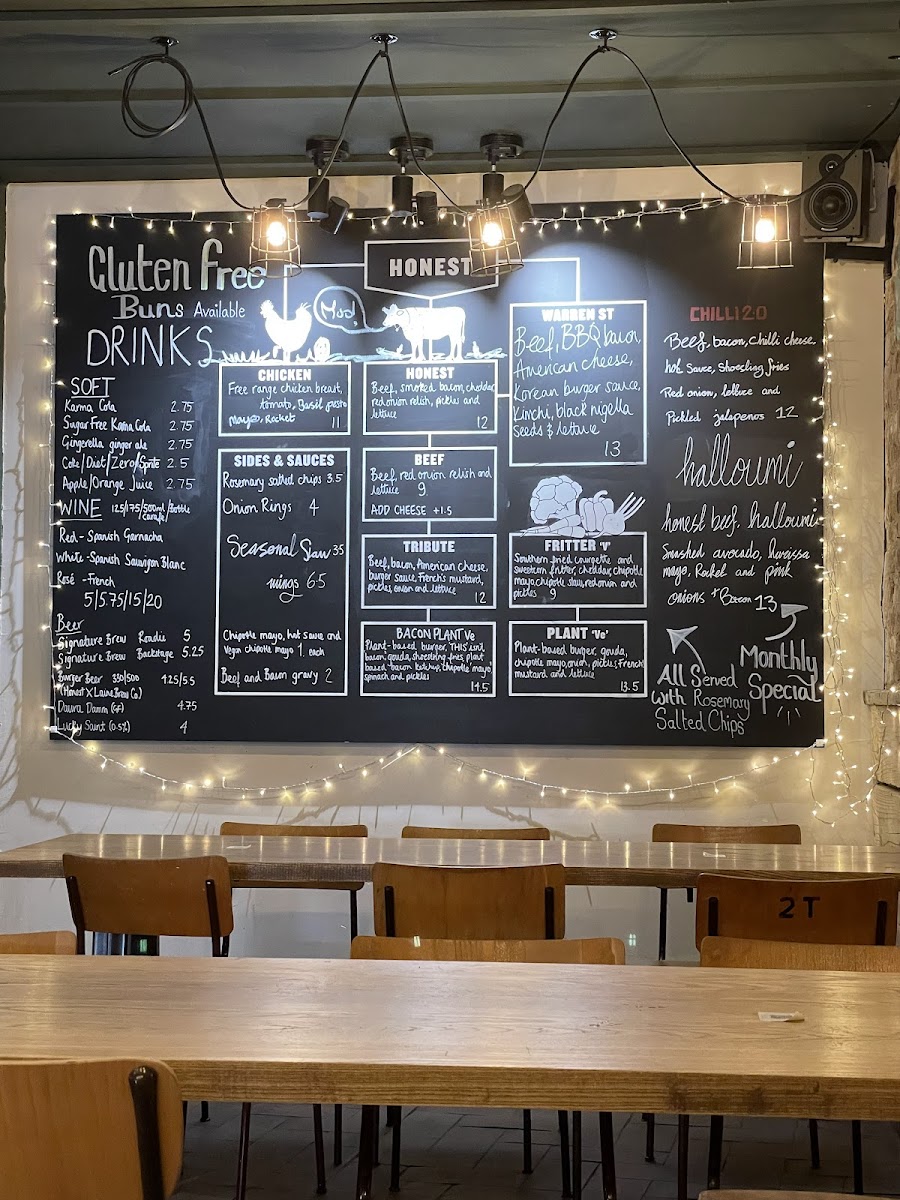 Gluten free
Buns Available
DRINKS
SOFT
Karma Cola 2.75
Sugar Free Karma Cola 2.75
Gingerella ginger ale 2.75
Coke/Diet/Zero/Sprite 2.5
Apple/Orange Juice 2.75
WINE 125/175/500ml/Bottle
carafe/
Red - Spanish Garnacha
White - Spanish Sauvignon Blanc
Rosé - French
5/5.75/15/20
Beer
Signature Brew Roadie 5
Signature Brew Backstage 5.25
Burger Beer 330/500 4.25/5.5
(Honest X Laine Brew Co.)
Daura Damm (GF) 4.75
Lucky Saint (0.5%) 4
HONEST
Moo!
CHICKEN
Free range chicken breast,
tomato, basil pesto
mayo, Rocket 11
SIDES & SAUCES
Rosemary salted chips 3.5
Onion Rings 4
Seasonal Slaw 3.5
wings 6.5
Chipotle mayo, hot sauce and
Vegan chipotle mayo 1 each
Beef and Bacon gravy 2
HONEST
Beef, smoked bacon, cheddar,
red onion relish, pickles and
lettuce 12
BEEF
Beef, red onion relish and
lettuce 9
ADD CHEESE +1.5
TRIBUTE
Beef, bacon, American cheese,
burger sauce, French's mustard,
pickles, onion and lettuce 12
BACON PLANT Ve
Plant-based burger, 'THIS' isn't
bacon, gouda, shoestring fries, plant
based "bacon ketchup, chipotle mayo,
spinach and pickles
14.5
WARREN ST
Beef, BBQ bacon,
American cheese,
Korean burger sauce,
Kimchi, black nigella
seeds & lettuce
13
FRITTER 'V'
Southern fried courgette and
sweetcorn fritter, cheddar, chipotle
mayo, chipotle slaw, red onion and
pickles 9
PLANT 'Ve'
Plant-based burger, gouda,
chipotle mayo, onion, pickles, French's
mustard and lettuce
13.5
CHILLI 2.0
Beef, bacon, chilli cheese,
hot sauce, shoestring fries
Red onion, lettuce and
Pickled jalapenos 12
halloumi
honest beef, halloumi
Smashed avocado, harissa
mayo, Rocket and pink
onions + Bacon 13
All Served
with Rosemary
Salted Chips
Monthly
Special
2T